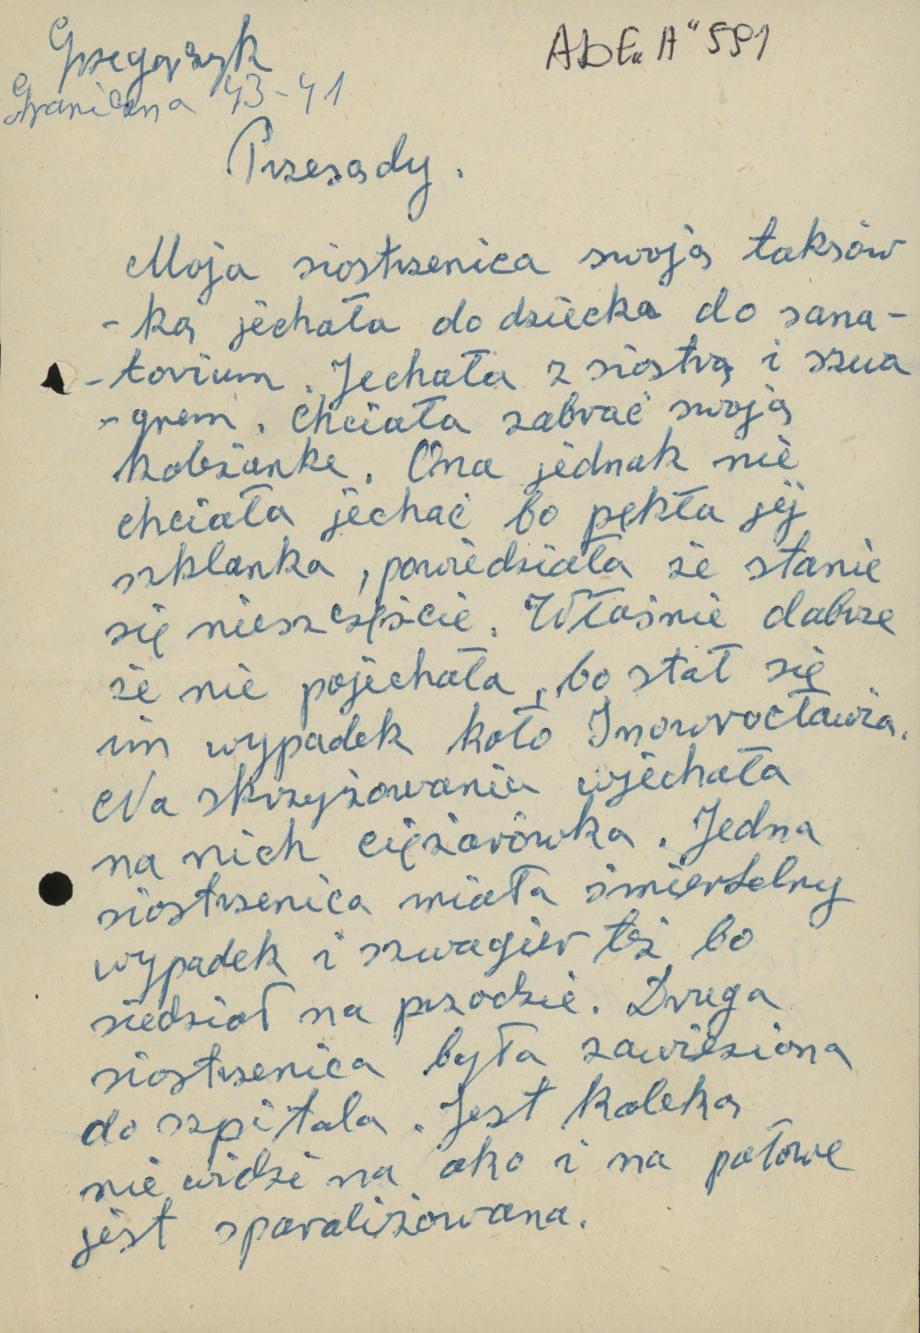 Grzegorzyk
AbE„A" 591
Graniczna 43-41
Przesądy.
Moja siostrzenica swoją taksów
-ką jechała do dziecka do sana-
-torium. Jechała z siostrą i szwa
-grem. Chciała zabrać swoją
koleżankę. Ona jednak nie
chciała jechać bo pękła jej
szklanka, powiedziała że stanie
się nieszczęście. Właśnie dobrze
że nie pojechała, bo stał się
im wypadek koło Inowrocławia.
Na skrzyżowaniu wjechała
na nich ciężarówka. Jedna
siostrzenica miała śmiertelny
wypadek i szwagier też bo
siedział na przodzie. Druga
siostrzenica była zawieziona
do szpitala. Jest kaleką
nie widzi na oko i na połowę
jest sparaliżowana.